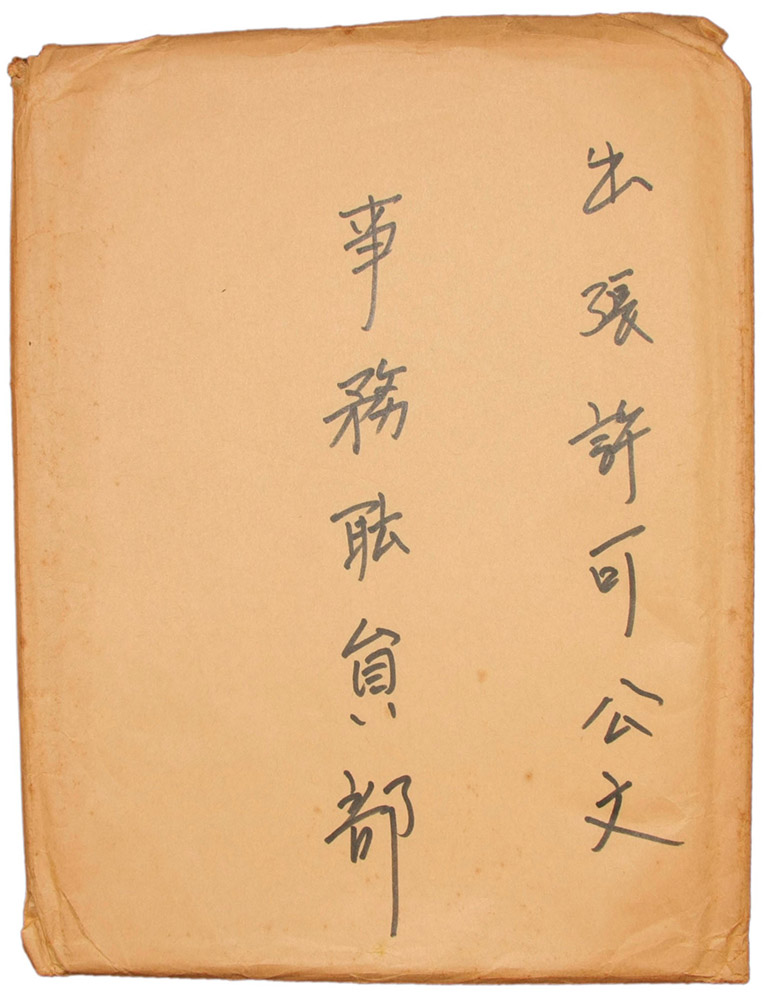 出張許可公文
事務耺員部